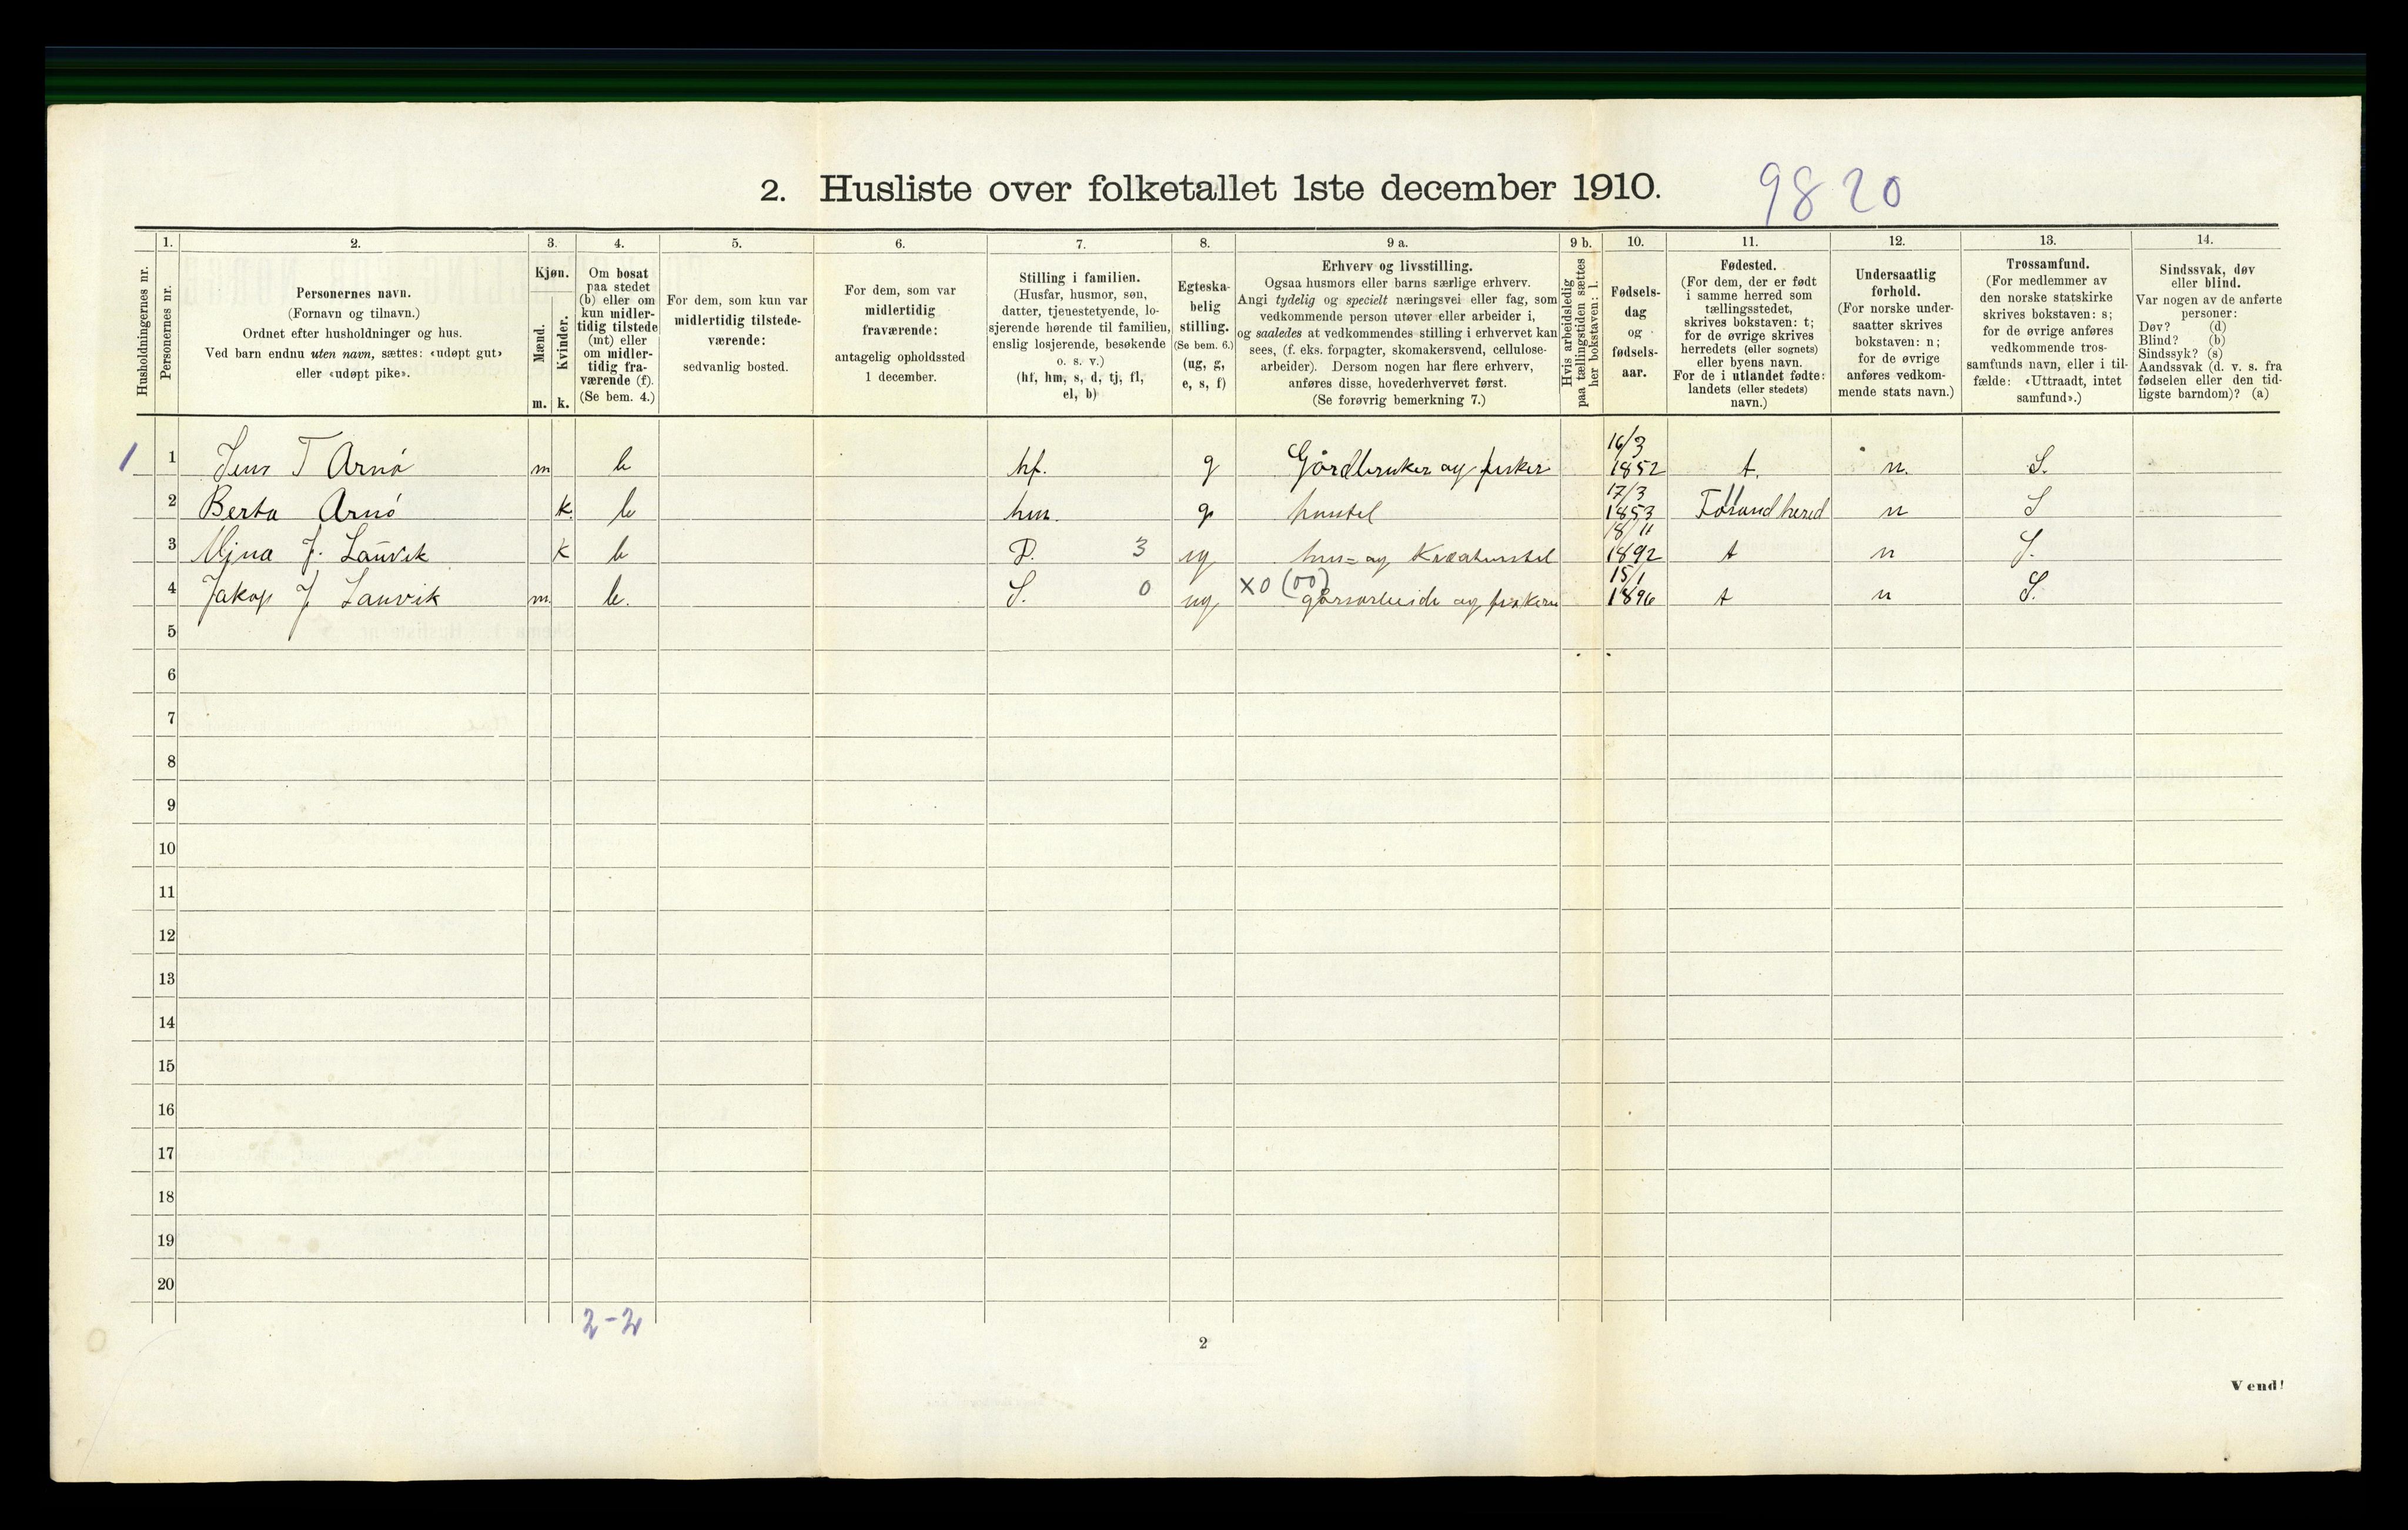 2. Husliste over folketallet 1ste december 1910.
9820
Husholdningernes nr.
1.
Personernes nr.
2.
Personernes navn.
(Fornavn og tilnavn.)
Ordnet efter husholdninger og hus.
Ved barn endnu uten navn, sættes: «udøpt gut»
eller «udøpt pike».
3.
Kjøn.
Mænd.
m.
Kvinder.
k.
4.
Om bosat
paa stedet
(b) eller om
kun midler-
tidig tilstede
(mt) eller
om midler-
tidig fra-
værende (f).
(Se bem. 4.)
5.
For dem, som kun var
midlertidig tilstede-
værende:
sedvanlig bosted.
6.
For dem, som var
midlertidig
fraværende:
antagelig opholdssted
1 december.
7.
Stilling i familien.
(Husfar, husmor, søn,
datter, tjenestetyende, lo-
sjerende hørende til familien,
enslig losjerende, besøkende
o. s. v.)
(hf, hm, s, d, tj, fl,
el, b)
8.
Egteska-
belig
stilling.
(Se bem. 6.)
(ug, g,
e, s, f)
9 a.
Erhverv og livsstilling.
Ogsaa husmors eller barns særlige erhverv.
Angi tydelig og specielt næringsvei eller fag, som
vedkommende person utøver eller arbeider i,
og saaledes at vedkommendes stilling i erhvervet kan
sees, (f. eks. forpagter, skomakersvend, cellulose-
arbeider). Dersom nogen har flere erhverv,
anføres disse, hovederhvervet først.
(Se forøvrig bemerkning 7.)
9 b.
Hvis arbeidsledig
paa tællingstiden sættes
her bokstaven: l.
10.
Fødsels-
dag
og
fødsels-
aar.
11.
Fødested.
(For dem, der er født
i samme herred som
tællingsstedet,
skrives bokstaven: t;
for de øvrige skrives
herredets (eller sognets)
eller byens navn.
For de i utlandet fødte:
landets (eller stedets)
navn.)
12.
Undersaatlig
forhold.
(For norske under-
saatter skrives
bokstaven: n;
for de øvrige
anføres vedkom-
mende stats navn.)
13.
Trossamfund.
(For medlemmer av
den norske statskirke
skrives bokstaven: s;
for de øvrige anføres
vedkommende tros-
samfunds navn, eller i til-
fælde: «Uttraadt, intet
samfund».)
14.
Sindssvak, døv
eller blind.
Var nogen av de anførte
personer:
Døv? (d)
Blind? (b)
Sindssyk? (s)
Aandssvak (d. v. s. fra
fødselen eller den tid-
ligste barndom)? (a)
1 1 Jens T Arnø m b hf. g Gårdbruker og fisker 16/3 1852 t. n. S.
2 Berta Arnø k. b hm. g hustel 17/3 1853 Fosand hered n S
3 J. Lauvik k b D. 3 ug hus= og Kreaturstel 18/11 1892 t n S.
4 Jakop J Lauvik m b. S. 0 ug X0 (00) gårsarbeide og 15/1 1896 t n S.
5
6
7
8
9
10
11
12
13
14
15
16
17
18
19
20
2-2
2
Vend!